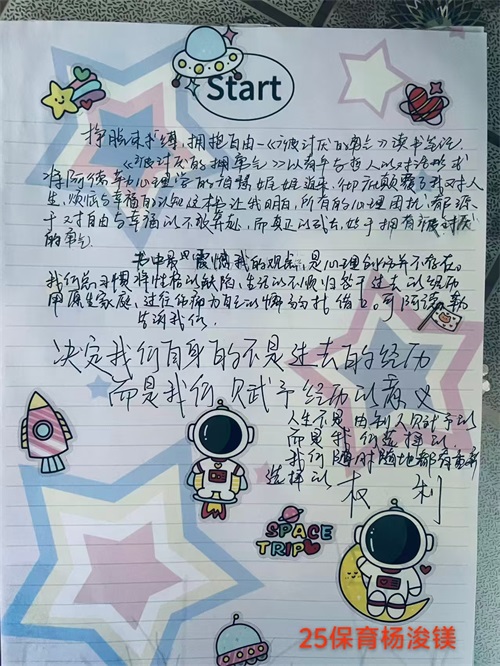 Start
挣脱束缚,拥抱自由-《被讨厌的勇气》读书笔记
《被讨厌的勇气》以青年与哲人的对话形式
将阿德勒心理学的智慧娓娓道来,彻底颠覆了我对人
生,烦恼与幸福的认知这本书让我明白,所有的心理困扰,都源
于对自由与幸福的不敢奔赴,而真正的成长,始于拥有被讨厌
的勇气
书中最震撼我的观念,是心理创伤并不存在。
我们总习惯将性格的缺陷,生活的不顺归咎于过去的经历
用原生家庭,过往伤痛为自己的懦弱找借口。可阿德勒
告诉我们:
决定我们自身的不是过去的经历
而是我们赋予经历的意义
人生不是由别人赋予的
而是我们选择的
我们随时随地都有重新
选择的权利
SPACE
TRIP
25保育杨浚镁